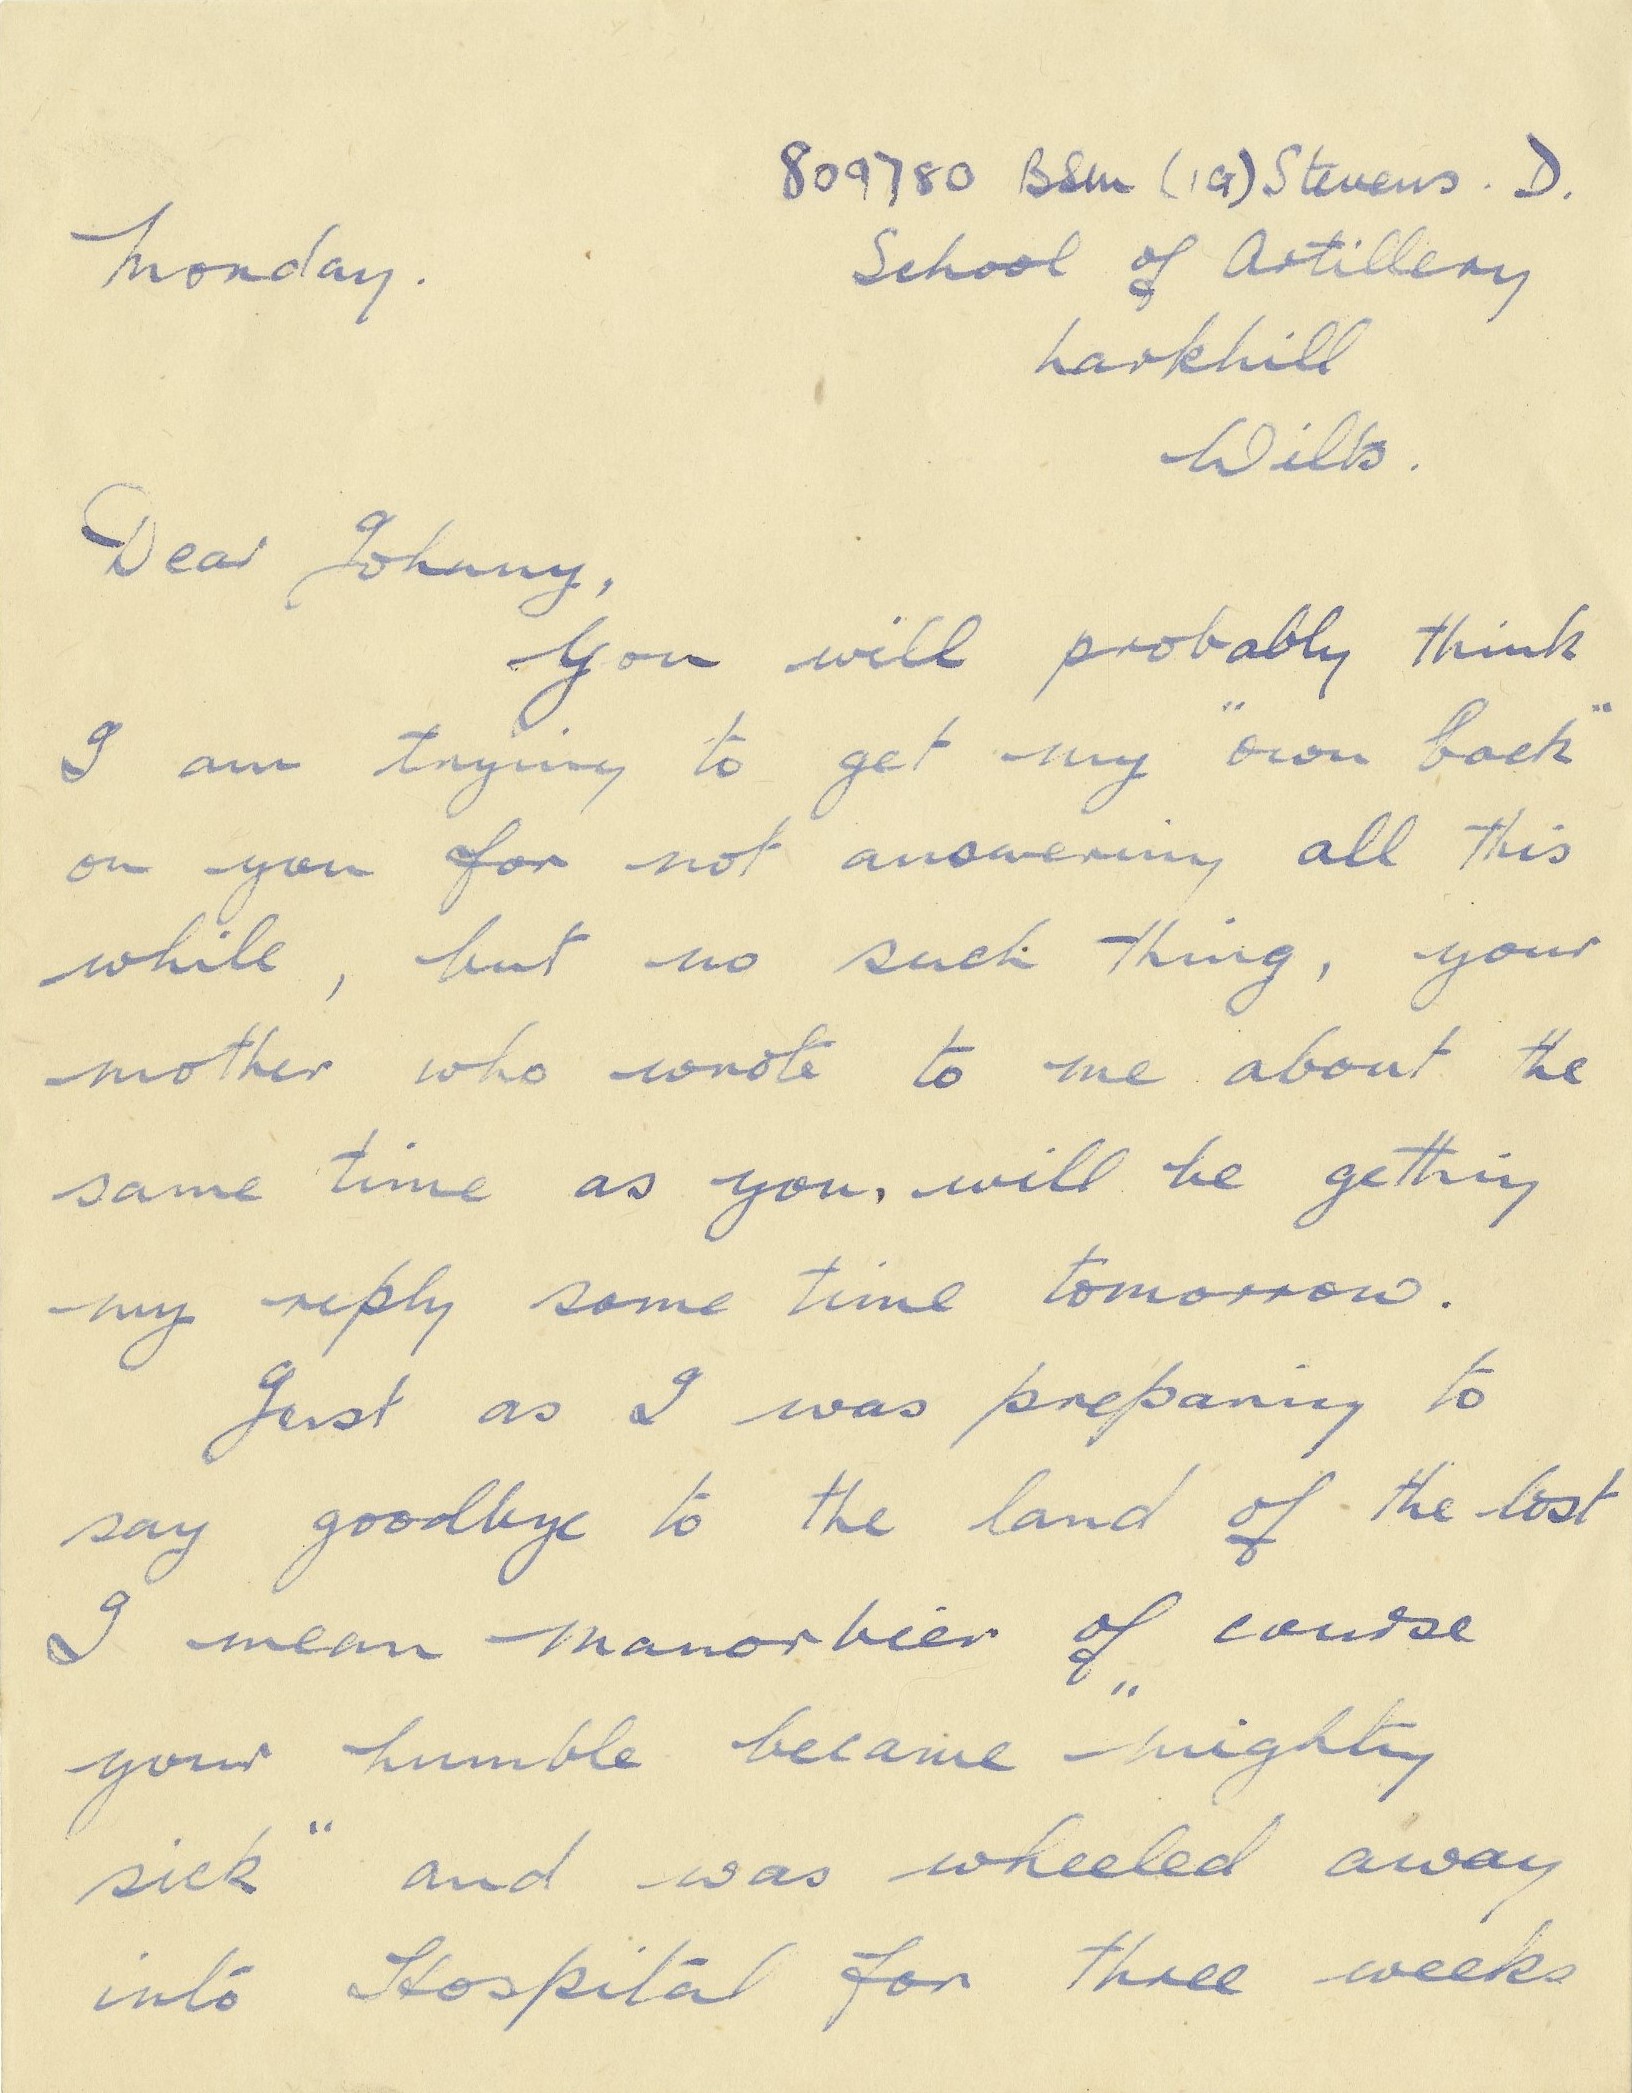 809780 BSM (IG) Stevens. D.
Monday.
School of Artillery
Larkhill
Wilts.
Dear Johnny,
You will probably think
I am trying to get my "own back"
on you for not answering all this
while, but no such thing, your
mother who wrote to me about the
same time as you, will be getting
my reply some time tomorrow.
Just as I was preparing to
say goodbye to the land of the lost
I mean Manorbier of course
your humble became "mighty
sick" and was wheeled away
into Hospital for three weeks